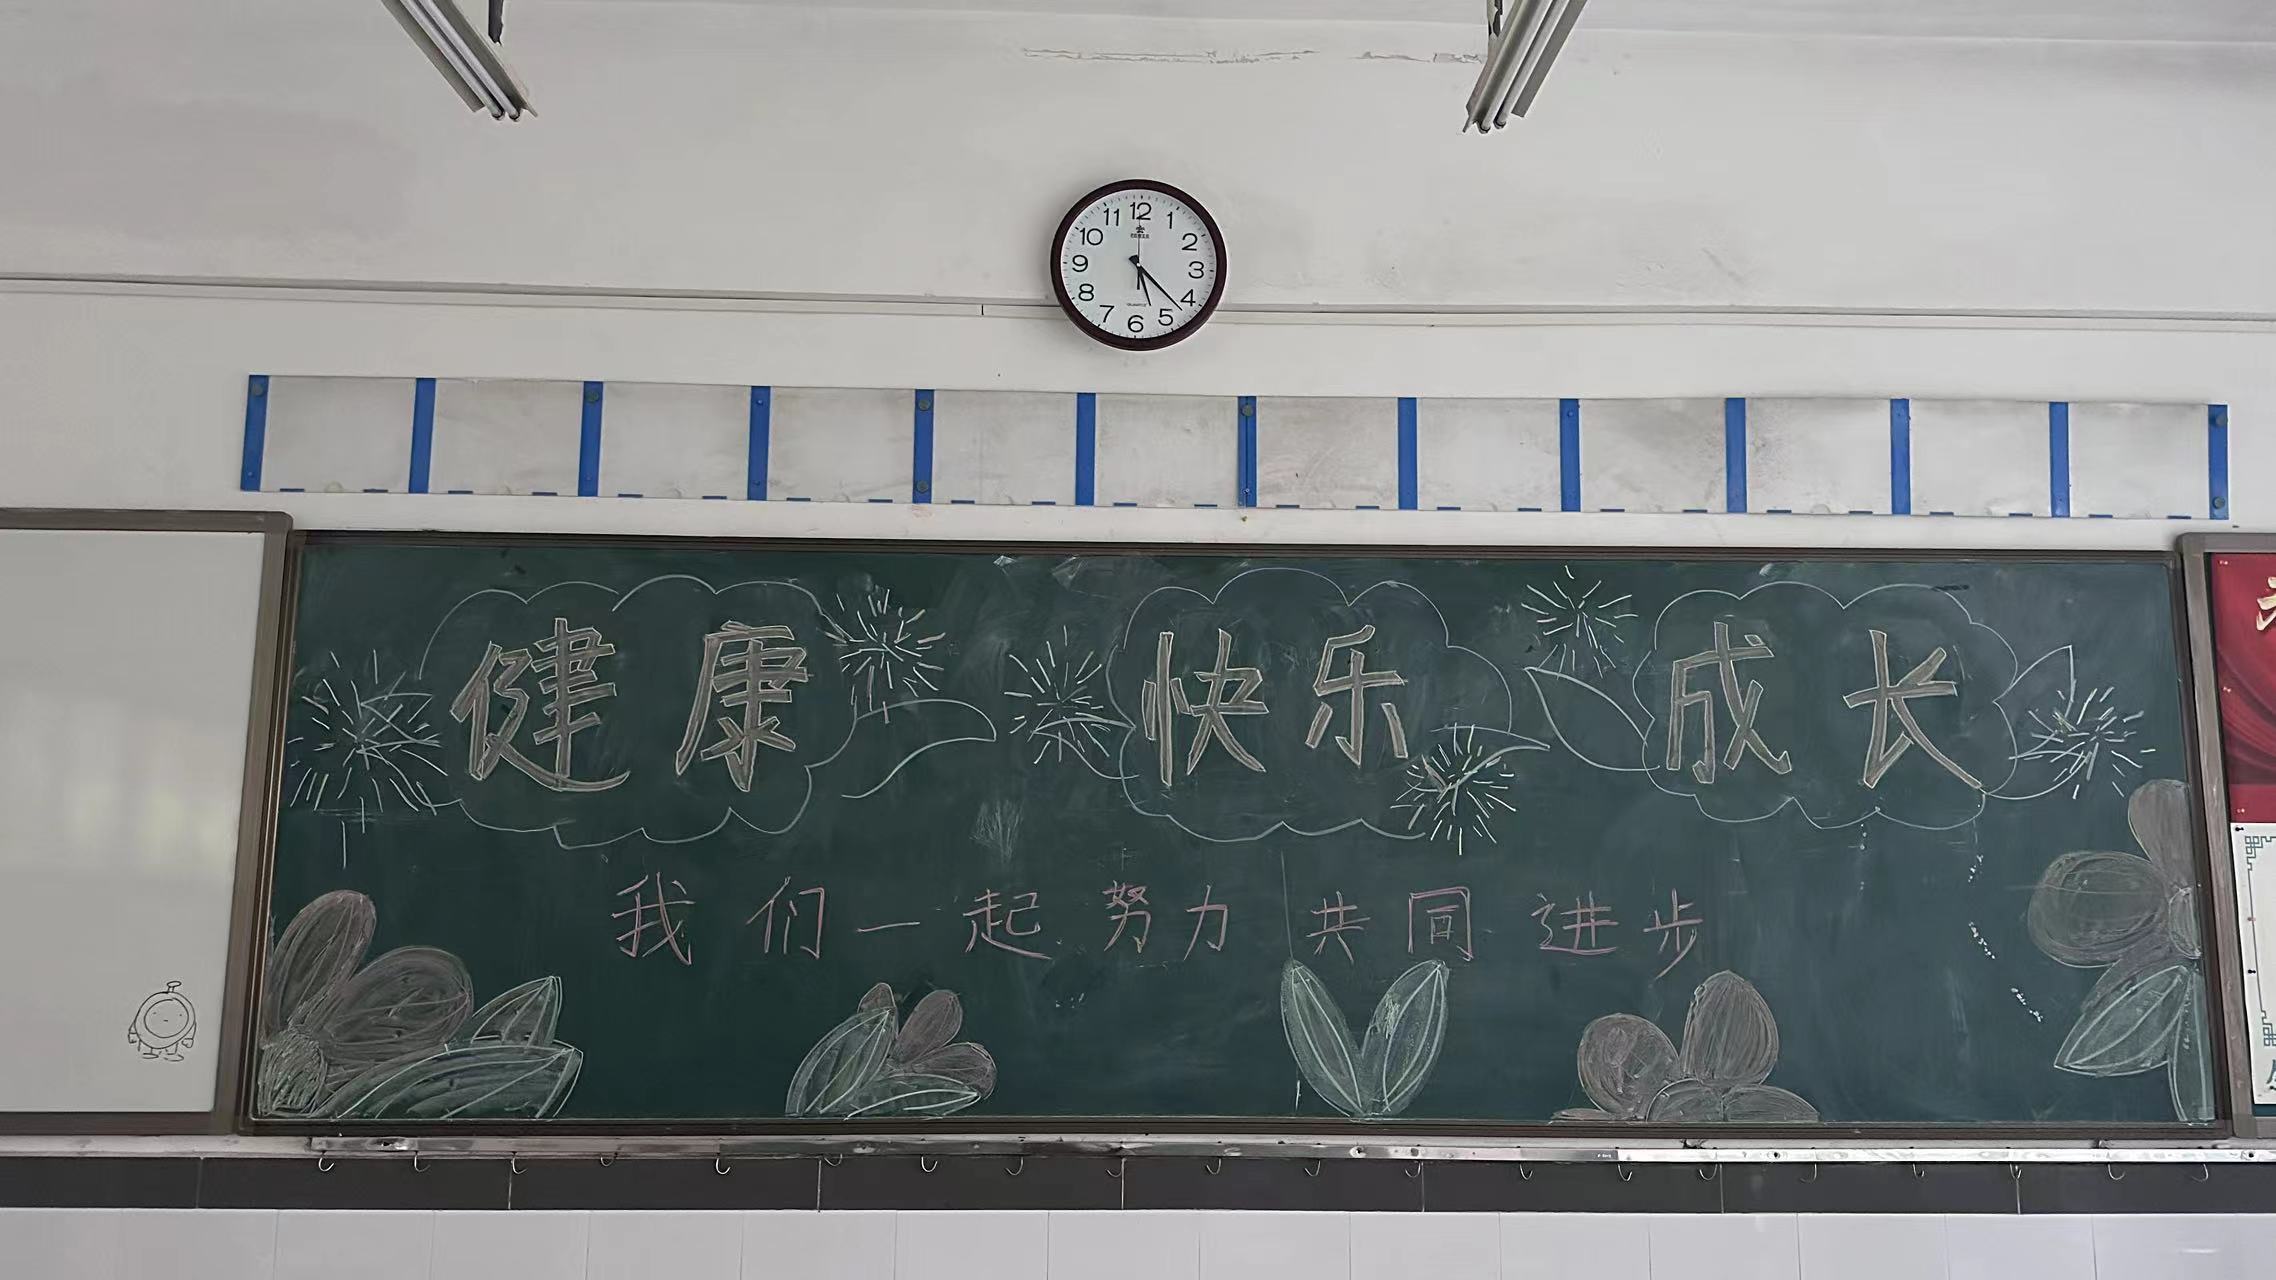 12
11 1
10 2
9 3
8 4
7 5
6
QUARTZ
健康 快乐 成长
我们一起努力共同进步